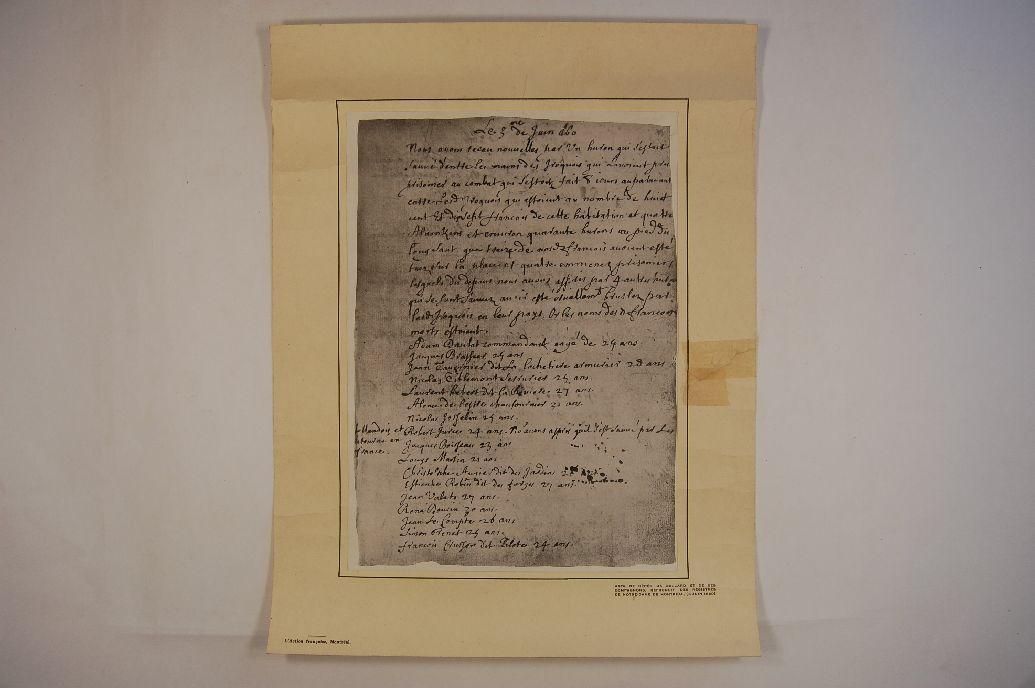 Le 3 me de Juin 660
Nous avons receu nouvelles par Un huron qui s'estoit
sauvé d'entre les mains des Iroquois qui l'avoient pris
prisonier au combat qui s'estoit fait 8 iours auparavant
entre lesd Iroquois qui estoient au nombre de huict
cent Et dix sept francois de cette habitation et quatre
et environ quarante hurons au pied du
long Saut que treize de nosd francois avoient esté
tuez sur la place et quatre emmenez prisoniers
lesquels du depuis nous avons appris par 4 autres hurons
qui se sont sauvez avoir esté bruslez par
lesd Iroquois en leur pays. Or les noms des francois
morts estoient.
Adam commandant de 25 ans
Jacques Brassier 25 ans
Jean Tavernier dit La Lochetiere armurier 28 ans
Nicolas Tiblemont serrurier 25 ans.
Laurent hebert dit La Riviere 27 ans.
Alonie de lestre chaufournier 31 ans.
Nicolas Josselin 25 ans.
Robert Jurie 24 ans. No' avons appris qu'il s'est sauvé par les
hollandois et
retourné en
france.
Jacques Boisseau 23 ans
Louys Martin 21 ans
Christophe Augier dit des Jardins
Estienne Robin dit des forges 27 ans.
Jean Valets 27 ans.
René Doussin 30 ans.
Jean le Compte 26 ans
Simon Grenet 25 ans.
francois Crusson dit Pilote 24 ans.
ACTE DE DÉCÈS DE DOLLARD ET DE SES
COMPAGNONS, EXTRAIT DES REGISTRES
DE NOTRE-DAME DE MONTRÉAL, (3 JUIN 1660)
L'Action française, Montréal.